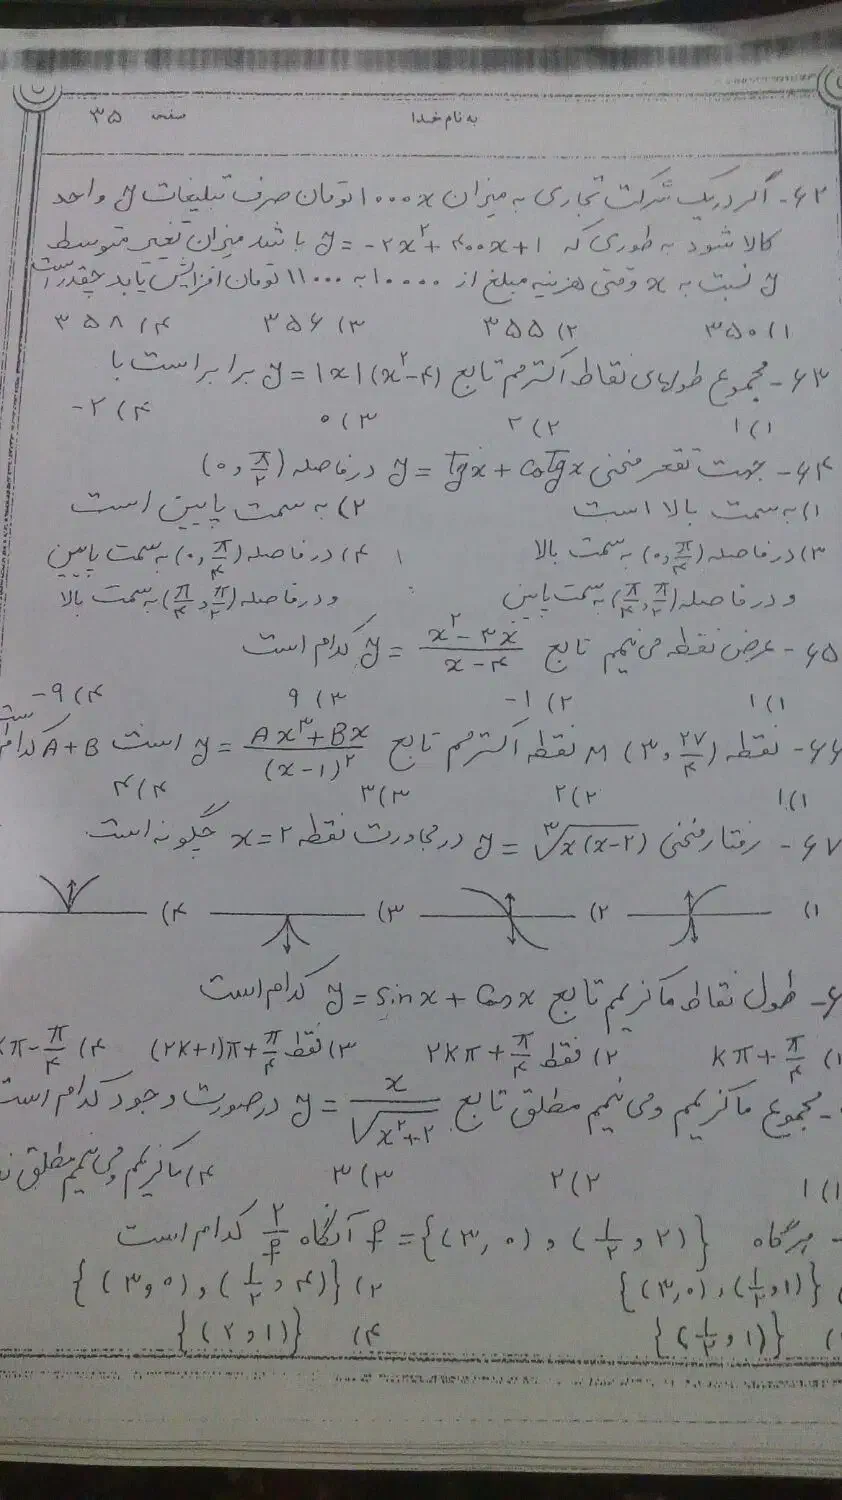 به نام خدا صفحه ۳۵
۶۲- اگر در یک شرکت تجاری به میزان ۱۰۰۰x تومان صرف تبلیغات y واحد
کالا شود به طوری که y = -۲x² + ۴۰۰x + ۱ باشد میزان تغییر متوسط
y نسبت به x وقتی هزینه مبلغ از ۱۰۰۰۰ به ۱۱۰۰۰ تومان افزایش یابد چقدر است
۱) ۳۵۰ ۲) ۳۵۵ ۳) ۳۵۶ ۴) ۳۵۸
۶۳- مجموع طولهای نقاط اکسترمم تابع y = |x|(x²-۴) برابر است با
۱) ۱ ۲) ۲ ۳) ۰ ۴) -۲
۶۴- جهت تقعر منحنی y = tgx + cotgx در فاصله (۰, π/۲)
۱) به سمت بالا است ۲) به سمت پایین است
۳) در فاصله (۰, π/۴) به سمت بالا ۴) در فاصله (۰, π/۴) به سمت پایین
و در فاصله (π/۴, π/۲) به سمت پایین و در فاصله (π/۴, π/۲) به سمت بالا
۶۵- عرض نقطه می نیمم تابع y = (x²-۳x)/(x-۴) کدام است
۱) ۱ ۲) -۱ ۳) ۹ ۴) -۹
۶۶- نقطه M(۳, ۲۷/۴) نقطه اکسترمم تابع y = (Ax³+Bx)/(x-۱)² است A+B کدام است
۱) ۱ ۲) ۲ ۳) ۳ ۴) ۴
۶۷- رفتار منحنی y = ∛x(x-۲) در مجاورت نقطه x=۲ چگونه است.
۱) ۲) ۳) ۴)
طول نقاط ماکزیمم تابع y = sinx + cosx کدام است
۱) kπ+π/۴ ۲) فقط ۲kπ+π/۴ ۳) فقط (۲k+۱)π+π/۴ ۴) kπ-π/۴
مجموع ماکزیمم و می نیمم مطلق تابع y = x/√(x²+۲) در صورت وجود کدام است
۱) ۱ ۲) ۲ ۳) ۳ ۴) ماکزیمم و می نیمم مطلق
هرگاه f = {(۳, ۰), (۱/۲, ۲)} آنگاه ۲/f کدام است
{(۳,۰), (۱/۲, ۱)} ۲) {(۳, ۰), (۱/۲, ۴)}
{(۱/۲, ۱)} ۴) {(۲, ۱)}